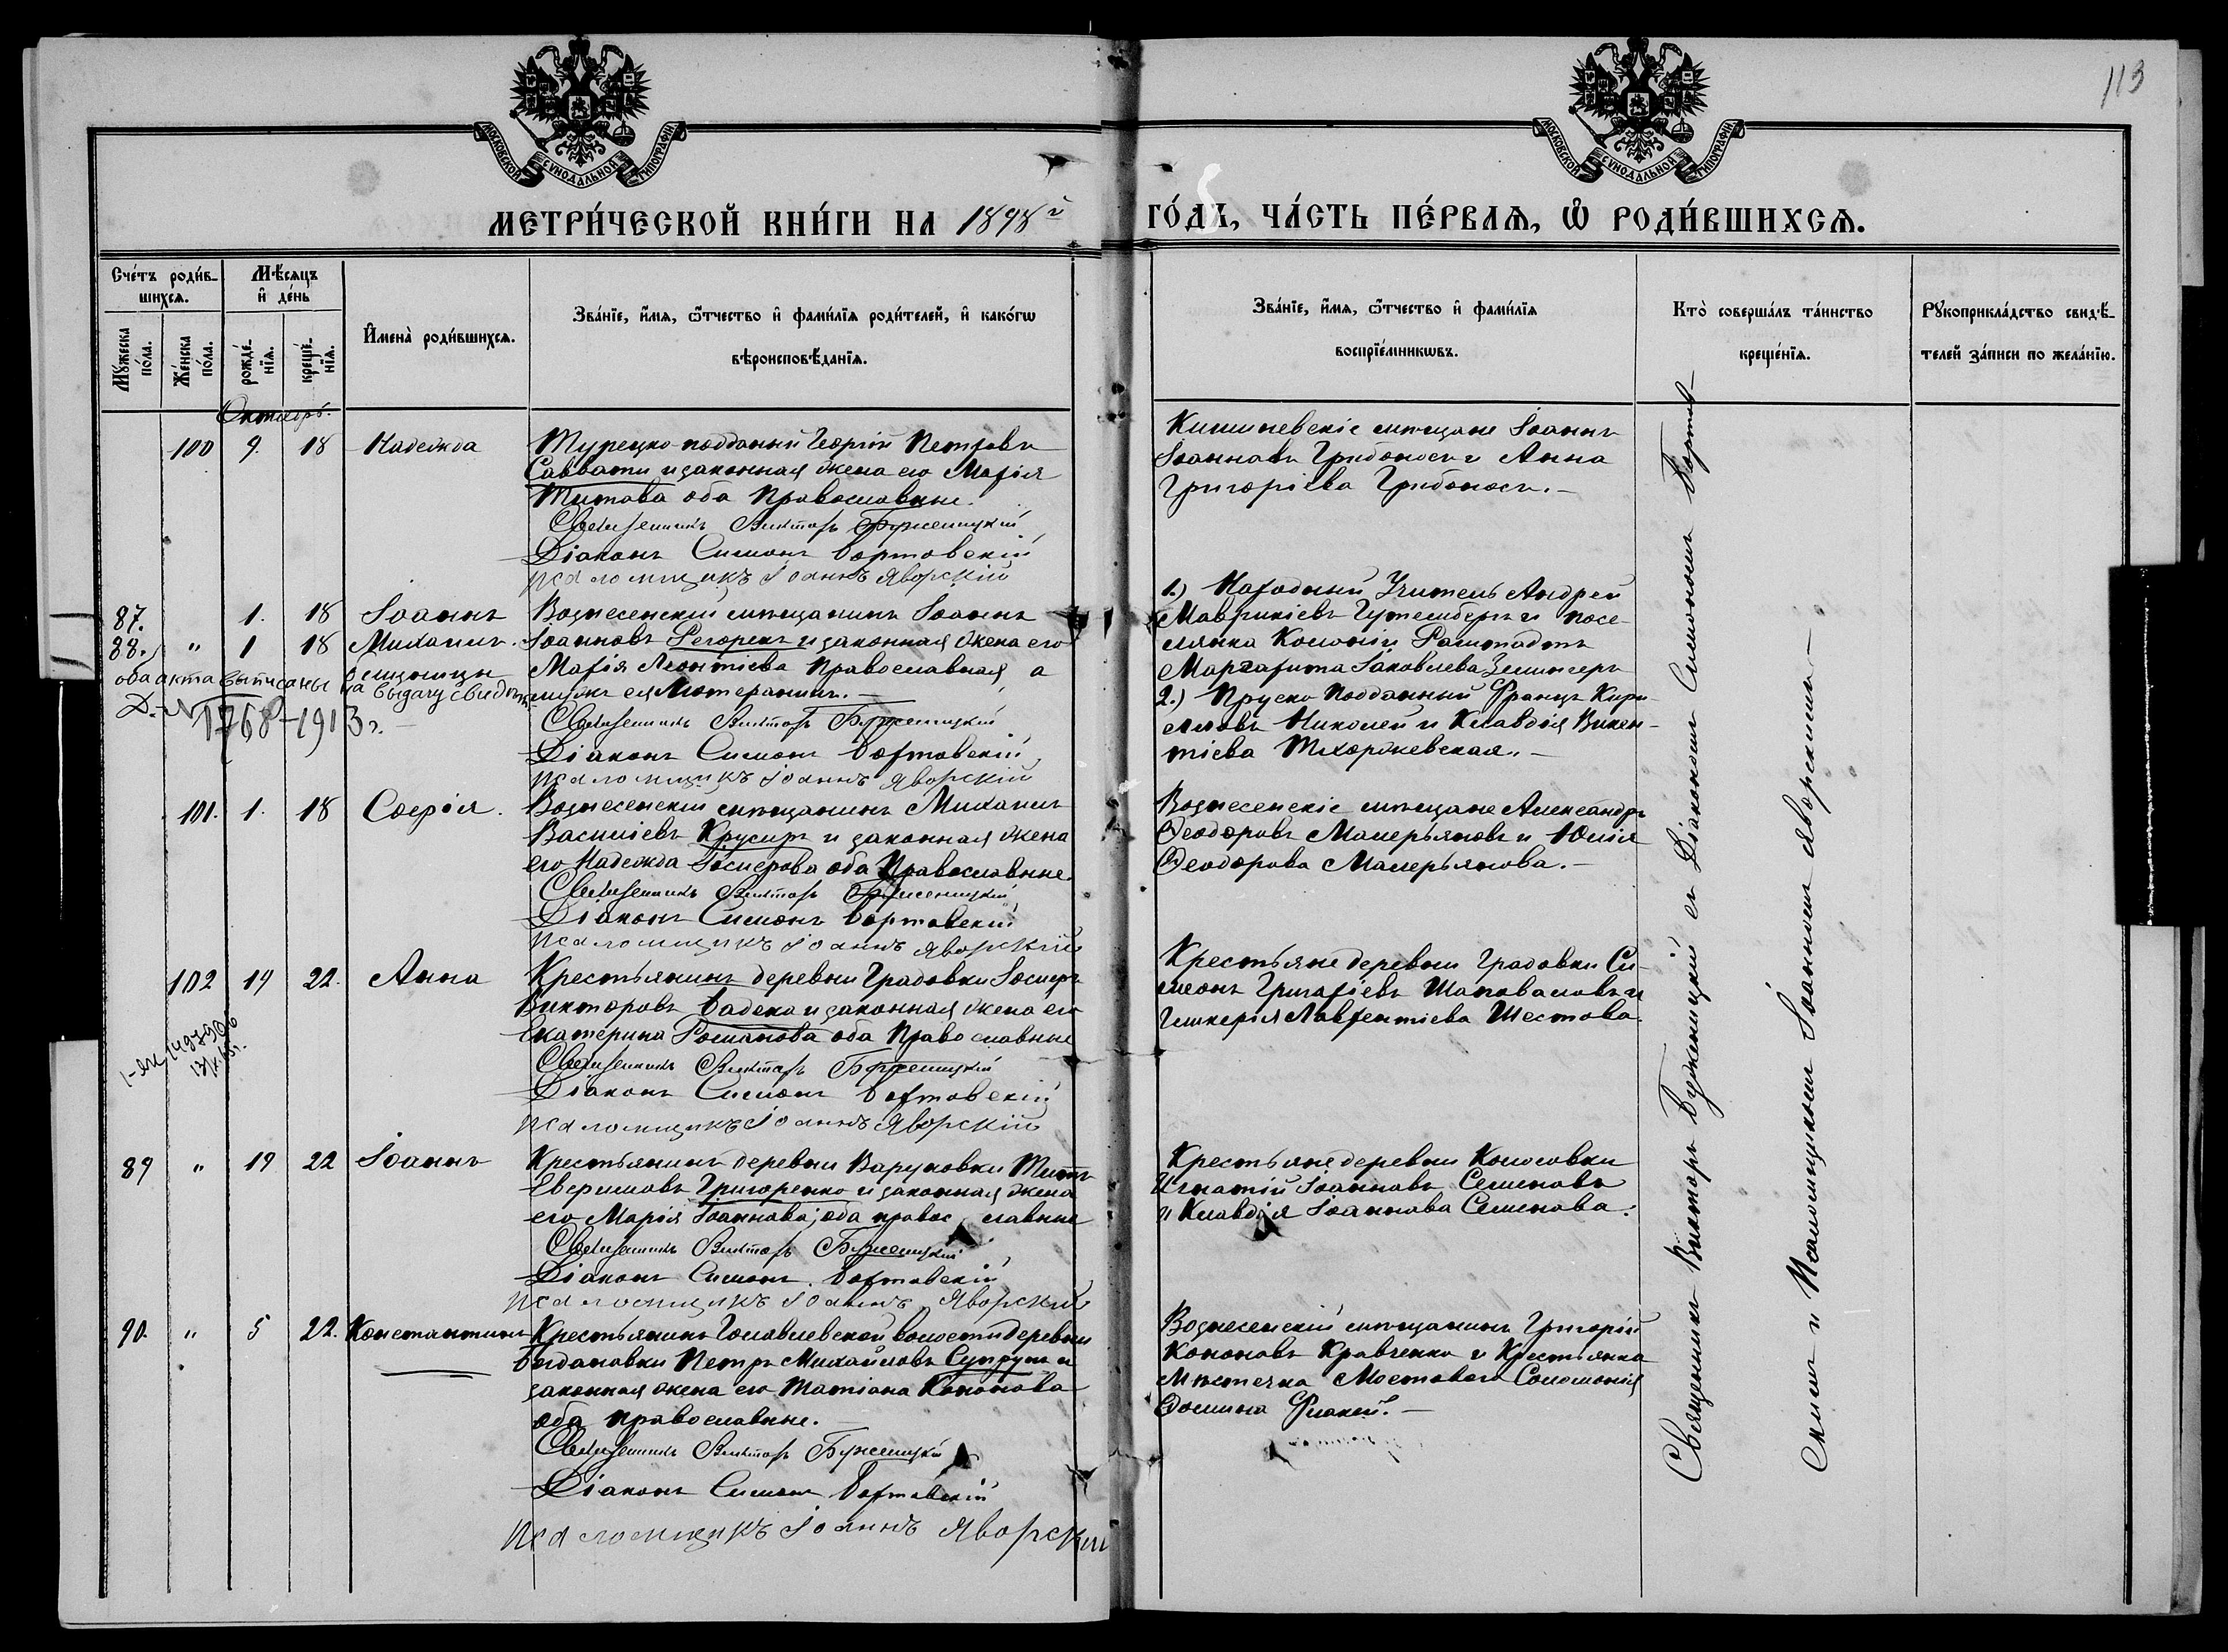 113
МОСКОВСКОЙ СѴНОДАЛЬНОЙ ТИПОГРАФІИ
МОСКОВСКОЙ СѴНОДАЛЬНОЙ ТИПОГРАФІИ
МЕТРИ́ЧЕСКОЙ КНИ́ГИ НА 1898й ГО́ДЪ, ЧА́СТЬ ПЕ́РВАѦ, Ѽ РОДИ́ВШИХСѦ.
Сче́тъ роди́в-
шихсѧ.
Мѣ́сѧцъ
и҆ де́нь
Мꙋ́жеска по́ла.
Же́нска по́ла.
рожде́-нїѧ.
креще́-нїѧ.
И҆мена̀ роди́вшихсѧ.
Зва́нїе, и҆́мѧ, ѻ҆́тчество и҆ фами́лїѧ роди́телей, и҆ како́гѡ
вѣроисповѣ́данїѧ.
Зва́нїе, и҆́мѧ, ѻ҆́тчество и҆ фами́лїѧ
воспрїе́мникѡвъ.
Кто̀ соверша́лъ та́инство
креще́нїѧ.
Рꙋкоприкла́дство свидѣ́-
телей за́писи по жела́нїю.
Октябрь.
100 9. 18 Надежда
Турецко-подданный Георгій Петровъ
Саввати и законная жена его Марія
Титова оба Православные.
Священникъ Викторъ Буженицкій
Діаконъ Симонъ Бортовскій
Псаломщикъ Іоаннъ Яворскій
Кишиневскіе мѣщане Іоаннъ
Іоанновъ Грибоносъ и Анна
Григоріева Грибоносъ.—
87. 1. 18 Іоаннъ
88. " 1 18 Михаилъ.
близнецы
оба акта выписаны на выдачу свидѣт.
1768-1913 г.—
Вознесенскій мѣщанинъ Іоаннъ
Іоанновъ Регорекъ и законная жена его
Марія Леонтіева Православная, а
мужъ ея Лютеранинъ.—
Священникъ Викторъ Буженицкій
Діаконъ Симонъ Бортовскій
Псаломщикъ Іоаннъ Яворскій
1.) Народный Учитель Андрей
Маврикіевъ Гутенбергъ и посе-
лянка Колоніи Раштадтъ
Маргарита Іаковлева Зелингеръ
2.) Пруско Подданный Францъ Кири-
лловъ Николей и Клавдія Викен-
тіева Тхоржевская.—
101. 1. 18 Софія.
Вознесенскій мѣщанинъ Михаилъ
Василіевъ Крусиръ и законная жена
его Надежда Іосифова оба Православные.
Священникъ Викторъ Буженицкій
Діаконъ Симонъ Бортовскій
Псаломщикъ Іоаннъ Яворскій
Вознесенскіе мѣщане Александръ
Ѳеодоровъ Мамерьяновъ и Юлія
Ѳеодорова Мамерьянова.—
102 19 22. Анна
Крестьянинъ деревни Градовки Іосифъ
Викторовъ Бадека и законная жена его
Екатерина Романова оба Православные
Священникъ Викторъ Буженицкій
Діаконъ Симонъ Бортовскій
Псаломщикъ Іоаннъ Яворскій
Крестьяне деревни Градовки Си-
меонъ Григоріевъ Шаповаловъ и
Гликерія Лаврентіева Шестова
89 " 19 22 Іоаннъ
Крестьянинъ деревни Варуновки Титъ
Евфимовъ Григоренко и законная жена
его Марія Іоаннова; оба православные
Священникъ Викторъ Буженицкій
Діаконъ Симонъ Бортовскій
Псаломщикъ Іоаннъ Яворскій
Крестьяне деревни Колосовки
Игнатій Іоанновъ Семеновъ
и Клавдія Іоаннова Семенова.
90. " 5 22. Константинъ
Крестьянинъ Головлевской волости деревни
Богдановки Петръ Михайловъ Супрунъ и
законная жена его Татіана Кононова
оба православные.—
Священникъ Викторъ Буженицкій
Діаконъ Симонъ Бортовскій
Псаломщикъ Іоаннъ Яворскій
Вознесенскій мѣщанинъ Григорій
Кононовъ Кравченко и Крестьянка
мѣстечка Мостового Соломонія
Ѳомина Флакей.—
Священникъ Викторъ Буженицкій съ Діакономъ Симономъ Бортов-
скимъ и Псаломщикомъ Іоанномъ Яворскимъ.—